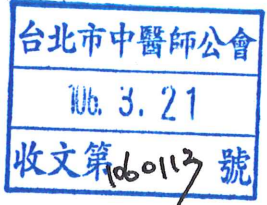 台北市中醫師公會
106. 3. 21
收文第1060113號